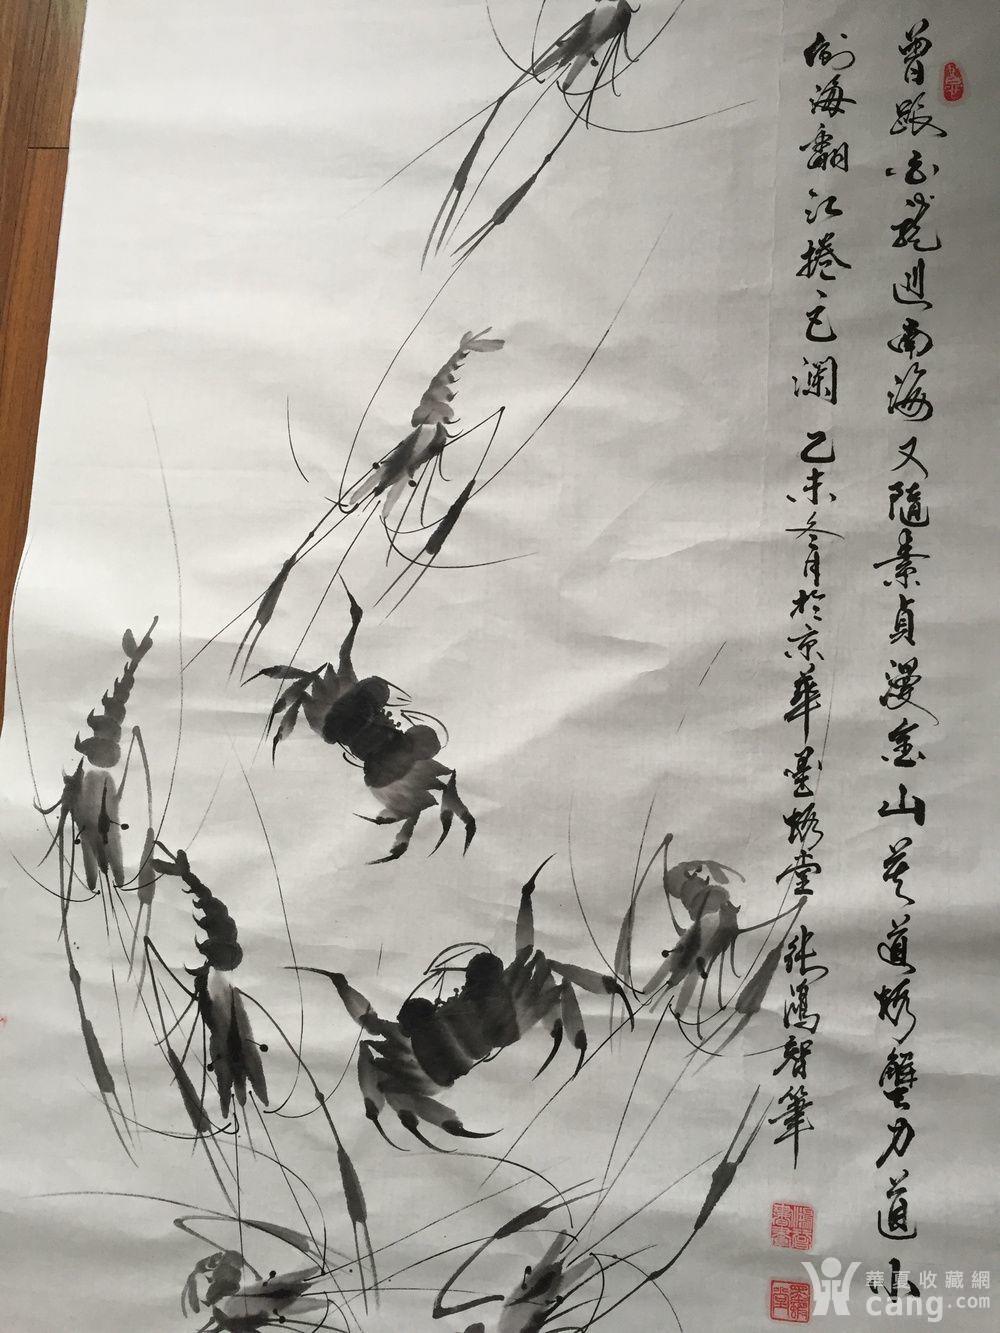 曾跟白龍逛南海又隨素貞漫金山莫道蝦蟹力道小
倒海翻江捲巨瀾 乙未冬月於京華墨蝦堂張鴻智筆
華夏收藏網
cang.com